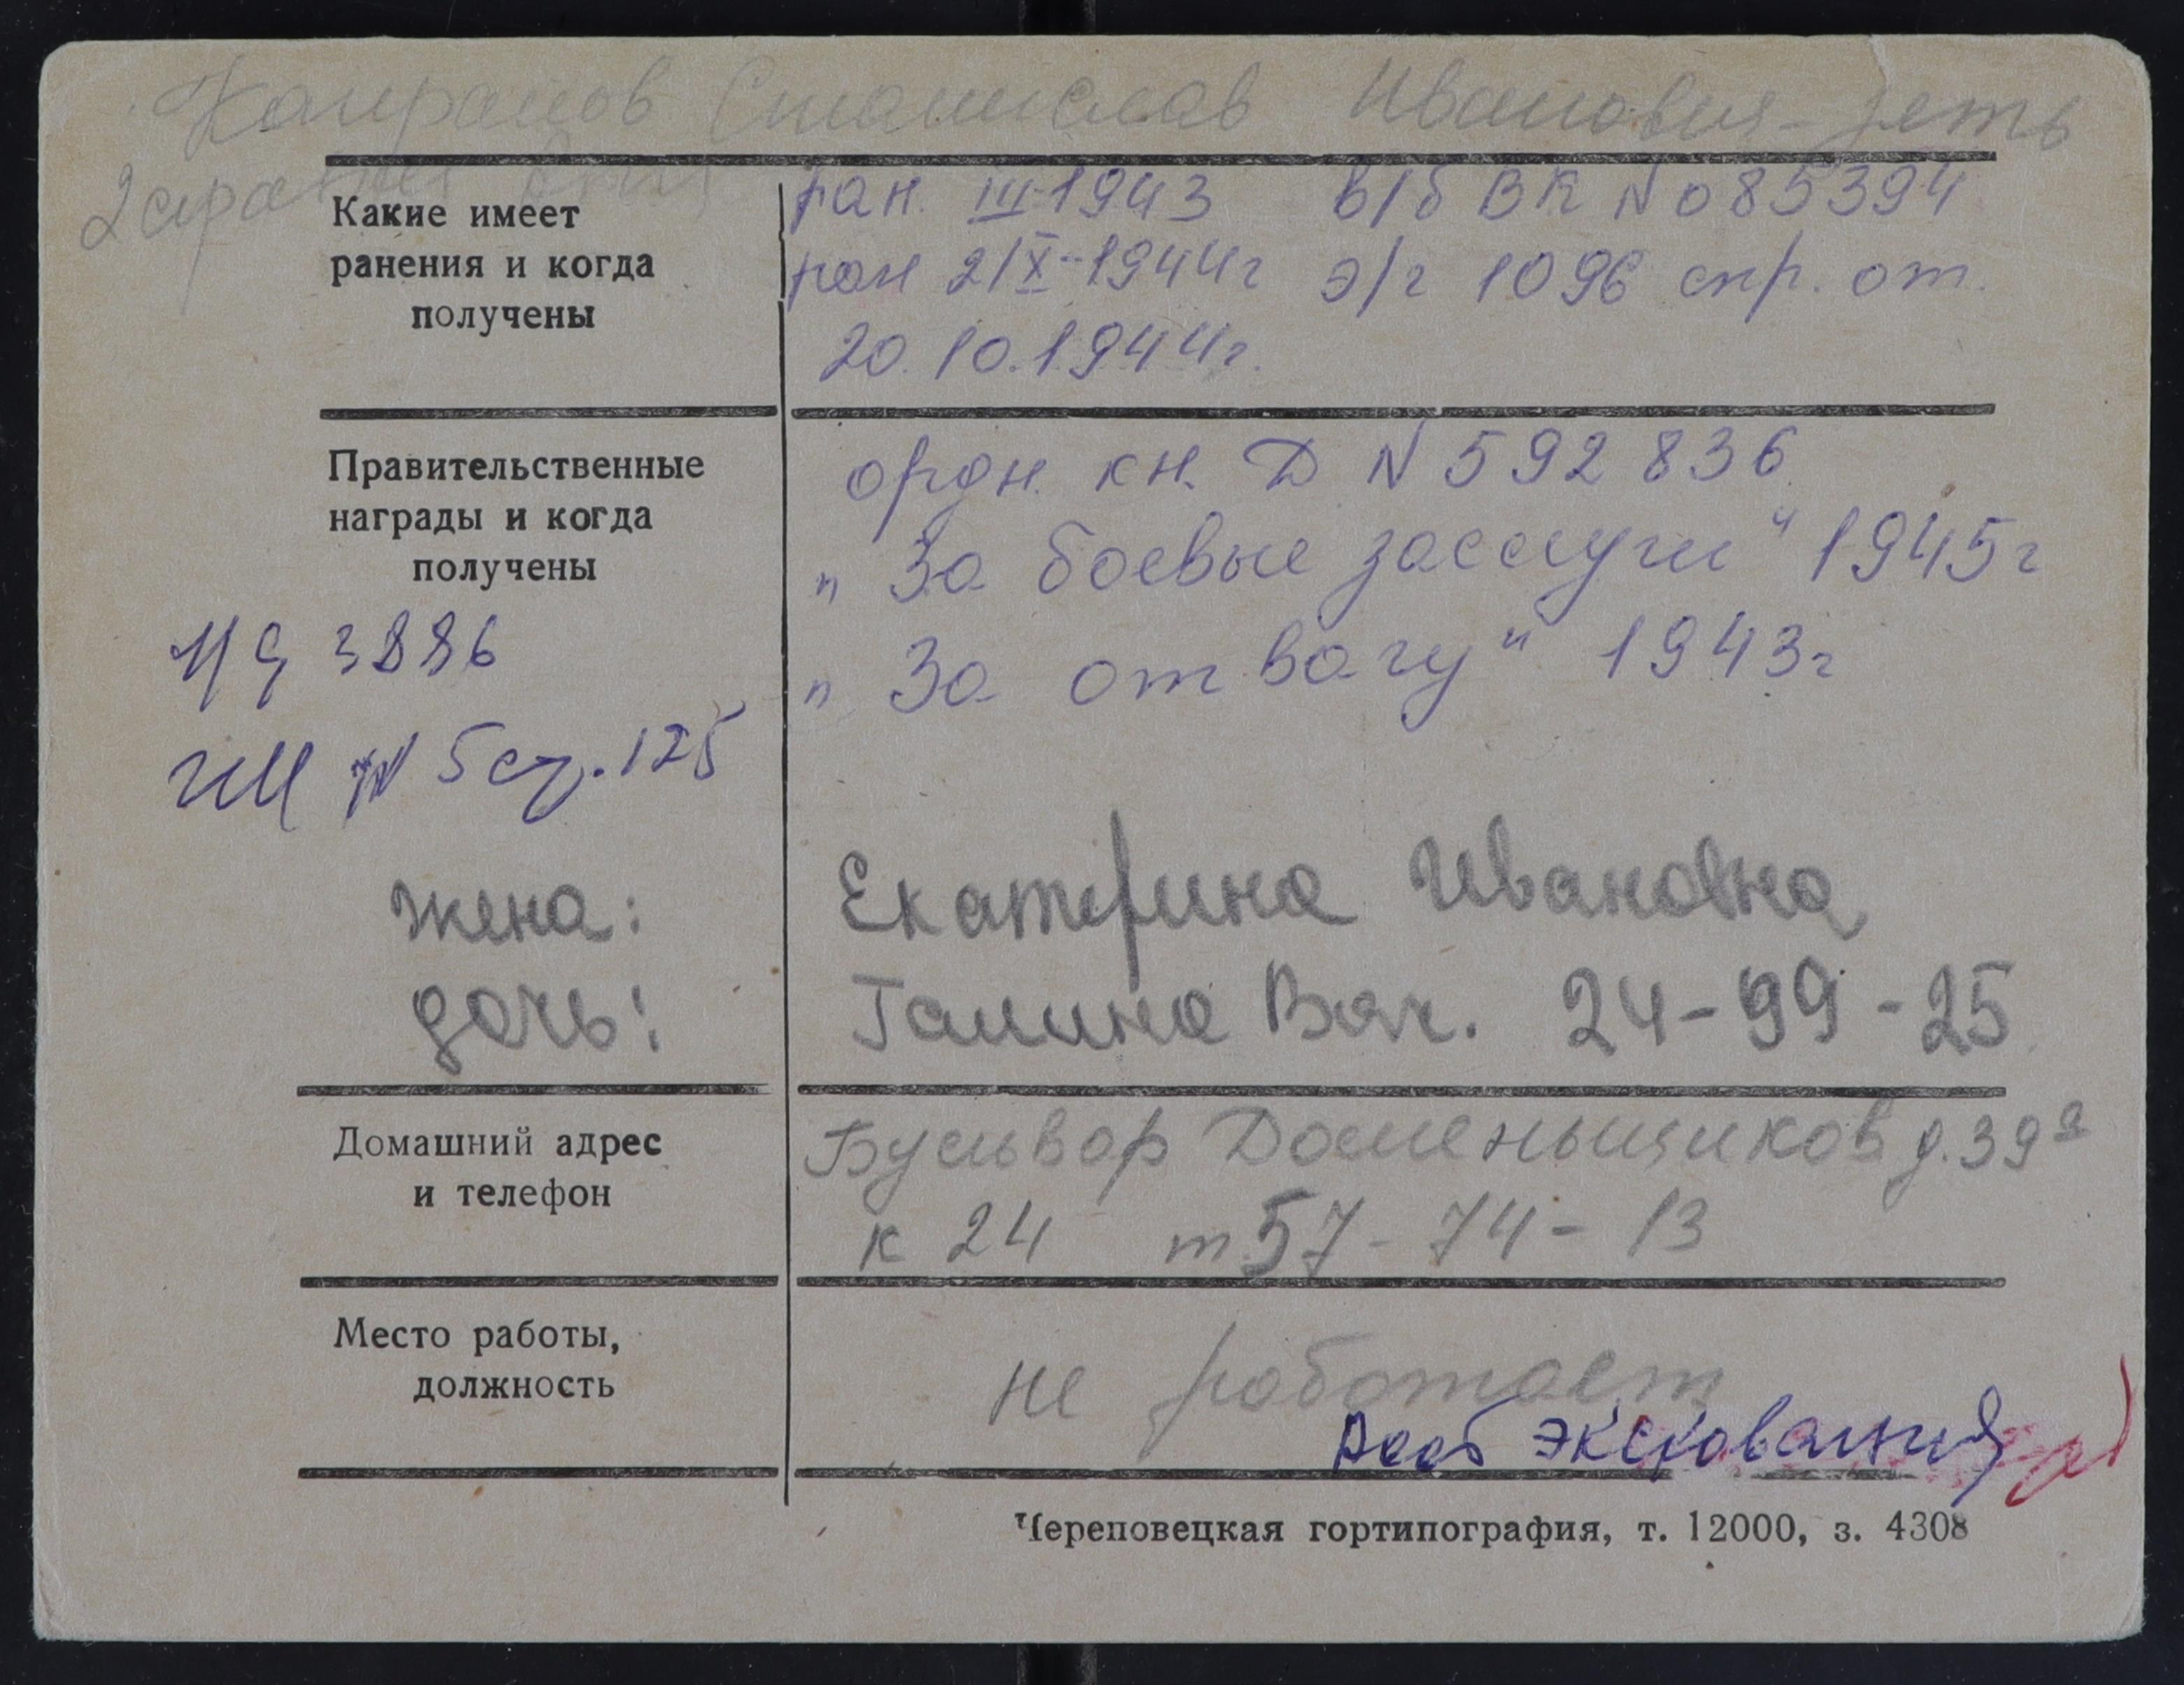 Станислав Иванович - зять
Какие имеет
ранения и когда
получены
ран. III-1943 в/б ВК № 085394
ран 2/X-1944г э/г 1096 спр. от.
20.10.1944г.
Правительственные
награды и когда
получены
ордн. кн. Д № 592836
„За боевые заслуги“ 1945г
„За отвагу“ 1943г
3886
№ 5 стр. 125
жена: Екатерина Ивановна
дочь: Галина Вяч. 24-99-25
Домашний адрес
и телефон
Бульвар Доменщиков д. 39а
к 24 т 57-74-13
Место работы,
должность
не работает
Череповецкая гортипография, т. 12000, з. 4308